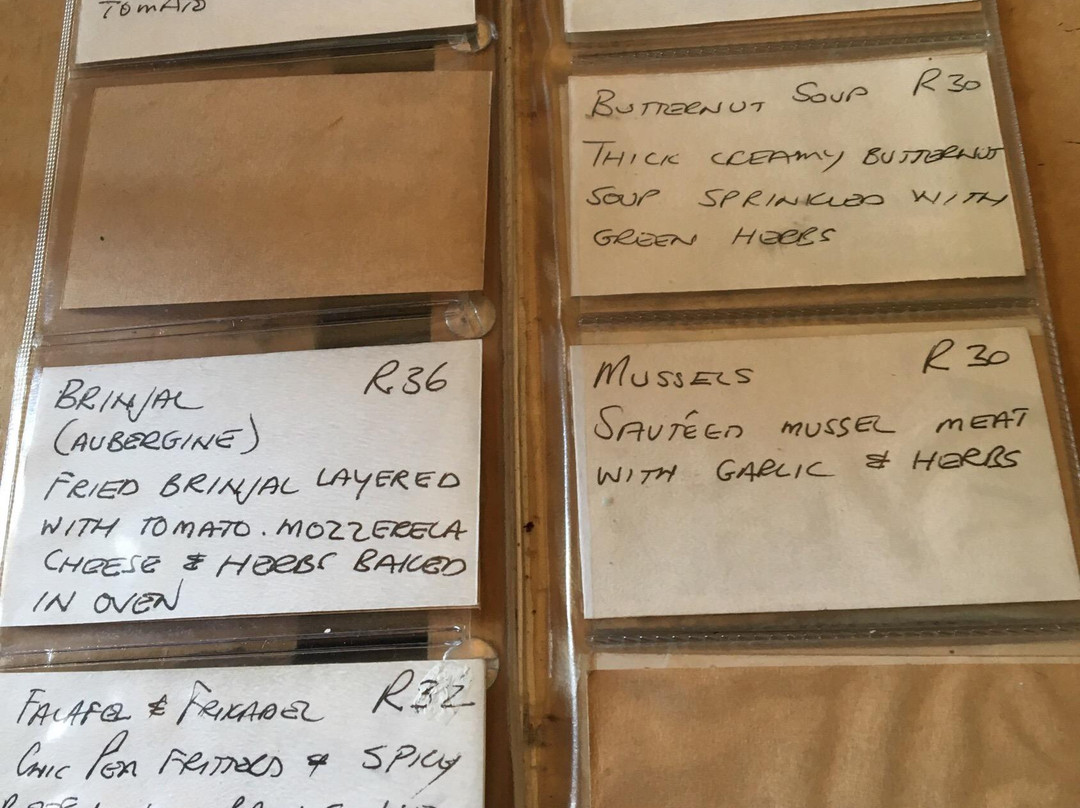 TOMATO
BRINJAL R36
(AUBERGINE)
FRIED BRINJAL LAYERED
WITH TOMATO. MOZZERELA
CHEESE & HERBS BAKED
IN OVEN
FALAFEL & FRIKADEL R32
CHIC PEA FRITTERS & SPICY
BUTTERNUT SOUP R30
THICK CREAMY BUTTERNUT
SOUP SPRINKLED WITH
GREEN HERBS
MUSSELS R30
SAUTÉED MUSSEL MEAT
WITH GARLIC & HERBS